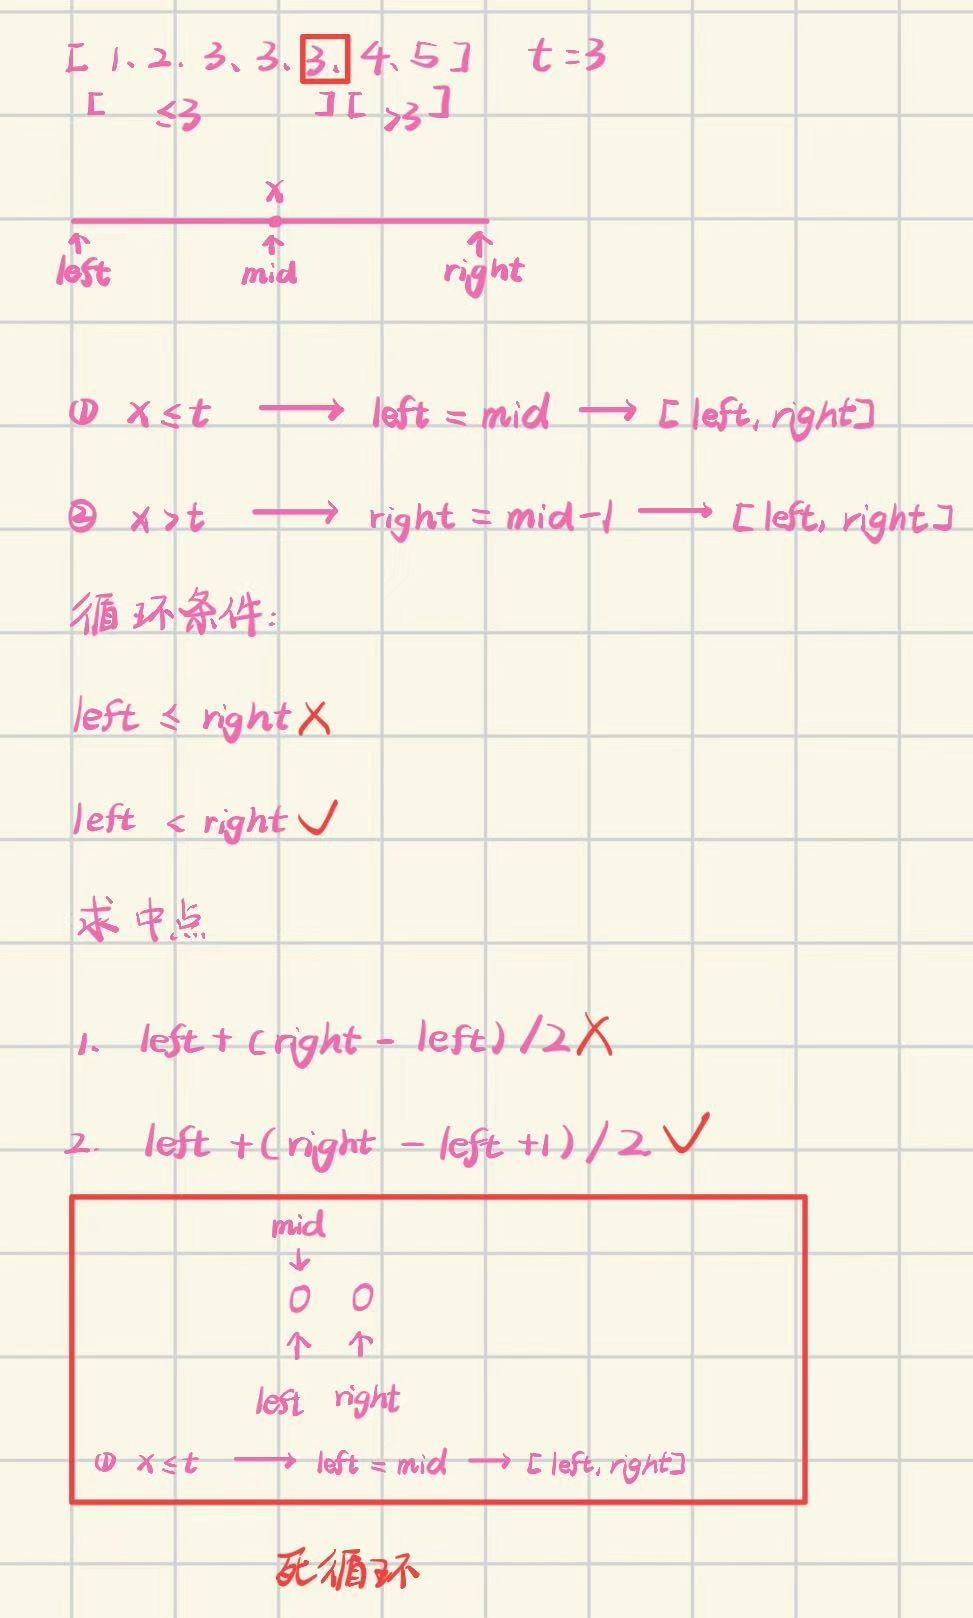 [ 1、2、3、3、3、4、5 ] t=3
[ ≤3 ][ >3 ]
x
left mid right
① x≤t → left = mid → [left, right]
② x>t → right = mid-1 → [left, right]
循环条件:
left ≤ right ×
left < right ✓
求中点
1. left+(right - left)/2 ×
2. left+(right - left +1)/2 ✓
mid
↓
0 0
↑ ↑
left right
① x≤t → left = mid → [left, right]
死循环